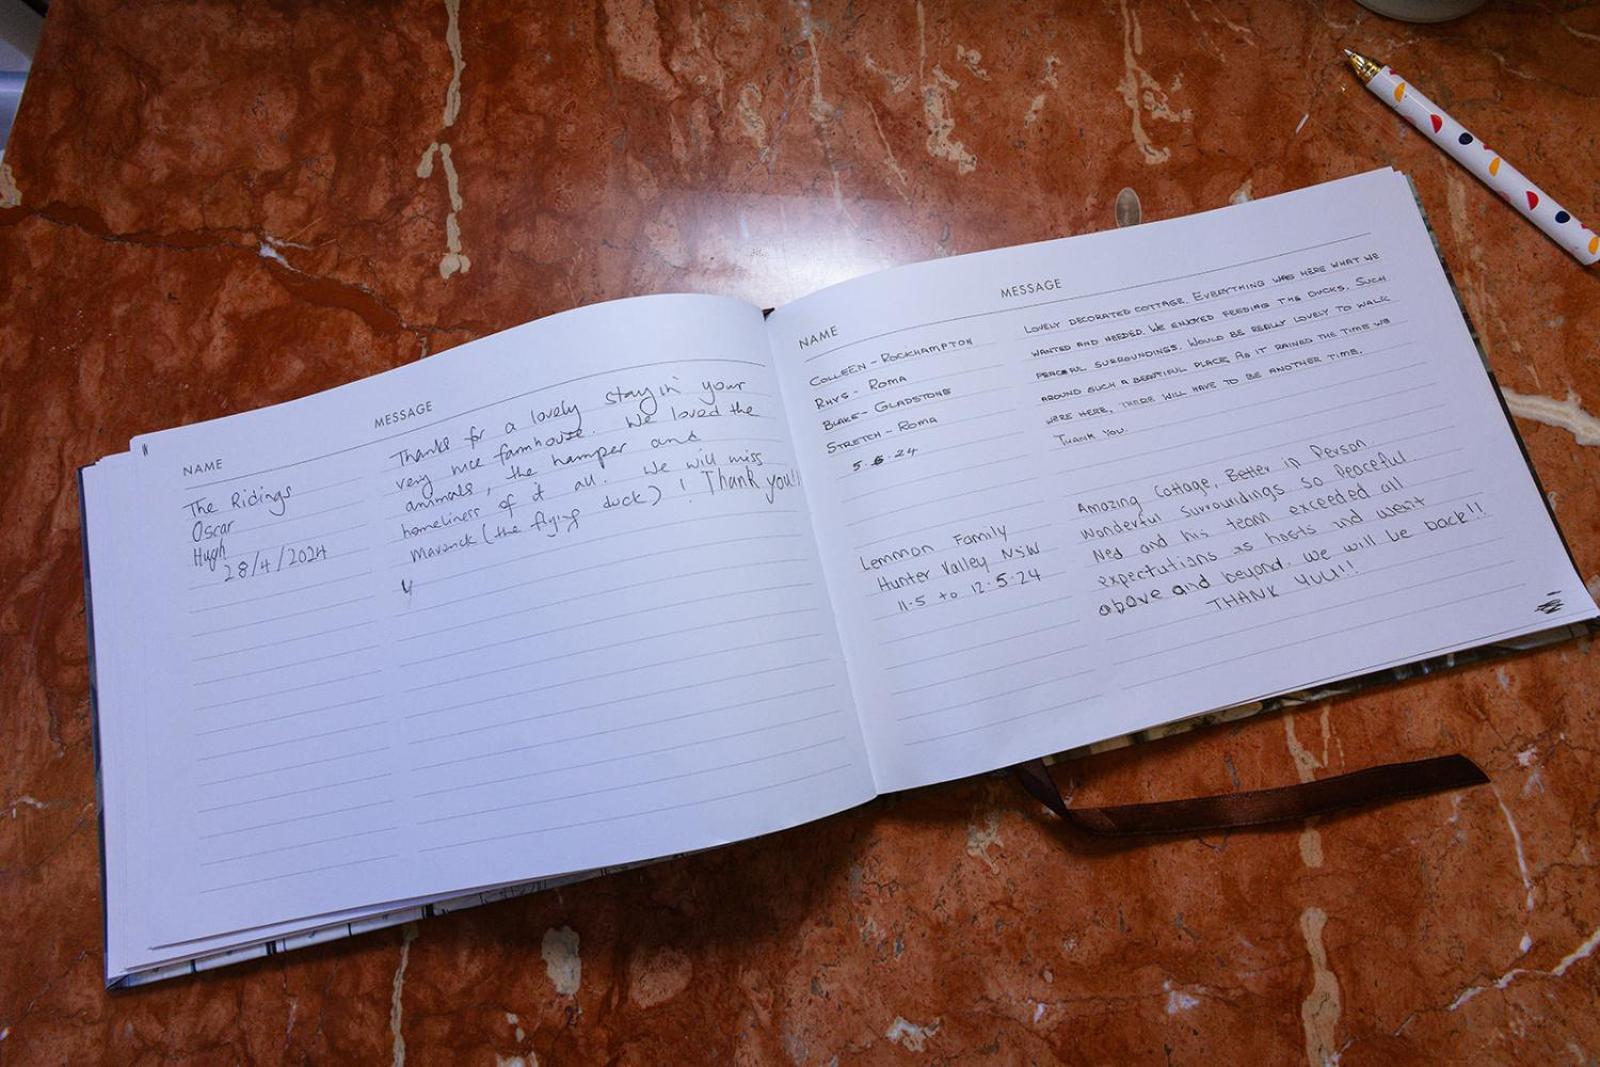 NAME
MESSAGE
The Ridings
Oscar
Hugh
28/4/2024
Thanks for a lovely stay in your
very nice farmhouse. We loved the
animals, the hamper and
homeliness of it all. We will miss
Maverick (the flying duck)! Thank you!!
NAME
MESSAGE
COLLEEN - ROCKHAMPTON
RHYS - ROMA
BLAKE - GLADSTONE
STRETCH - ROMA
5.5.24
LOVELY DECORATED COTTAGE. EVERYTHING WAS HERE WHAT WE
WANTED AND NEEDED. WE ENJOYED FEEDING THE DUCKS. SUCH
PEACFUL SURROUNDINGS. WOULD BE REALLY LOVELY TO WALK
AROUND SUCH A BEATIFUL PLACE, AS IT RAINED THE TIME WE
WERE HERE, THERE WILL HAVE TO BE ANOTHER TIME.
THANK YOU.
Lemmon Family
Hunter Valley NSW
11.5 to 12.5.24
Amazing Cottage, Better in Person.
Wonderful Surroundings so Peaceful.
Ned and his team exceeded all
expectations as hosts and went
above and beyond. We will be back!!
THANK YOU!!